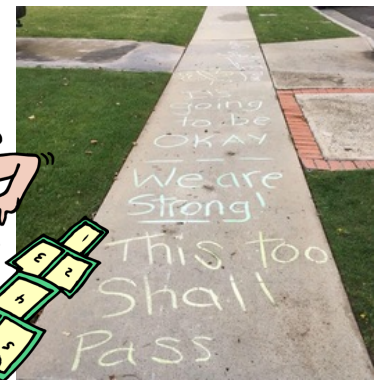 is
going
to be
OKAY
We are
Strong!
This too
Shall
Pass
1
2
3
4
5